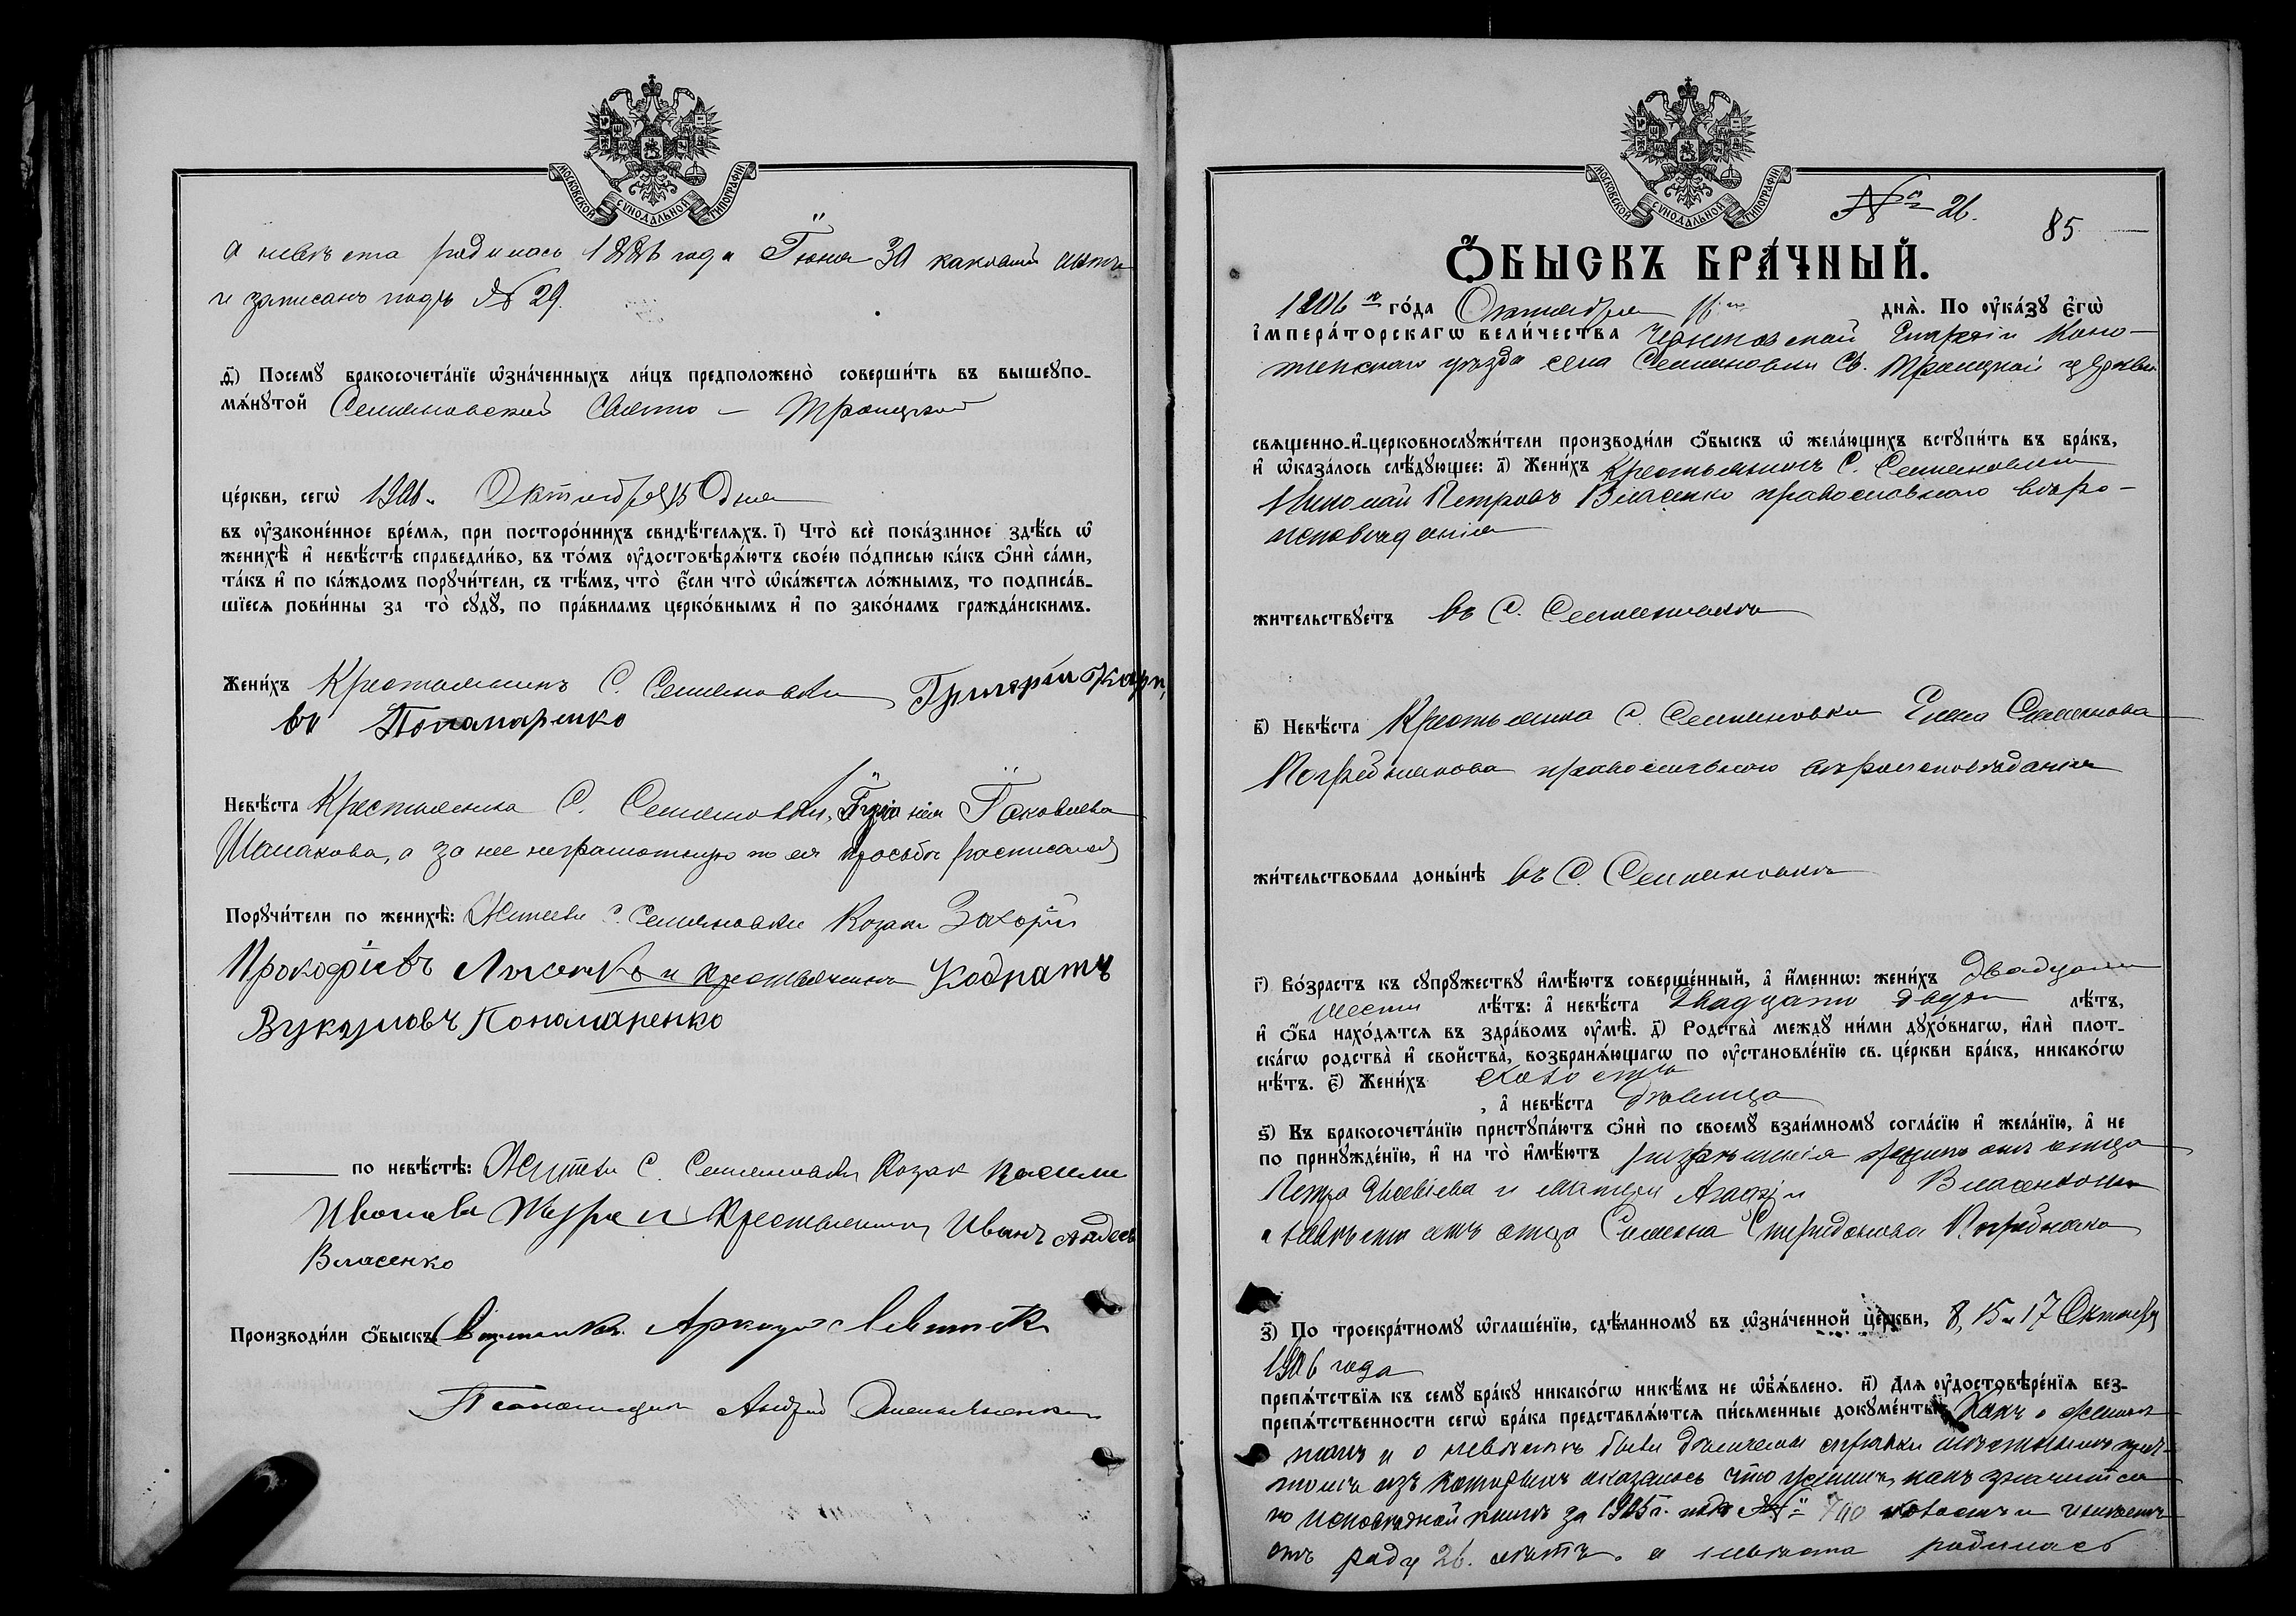 МОСКОВСКОЙ СѴНОДАЛЬНОЙ ТИПОГРАФІИ
а невѣста родилась 1886 года Іюня 30 каковый актъ
и записанъ подъ № 29.
д҃і) Посемꙋ бракосочета́нїе ѡзна́ченныхъ ли́цъ предположено̀ соверши́ть въ вышеꙋпо-
мѧ́нꙋтой Семеновской Свято – Троицкой
це́ркви, сегѡ̀ 1906 Октября 15 дня
въ оу҆законе́нное вре́мѧ, при посторо́ннихъ свидѣ́телѧхъ. і҃) Что̀ всѐ пока́занное здѣ́сь ѡ҆
женихѣ̀ и҆ невѣ́стѣ справедли́во, въ то́мъ оу҆достовѣрѧ́ютъ свое́ю по́дписью ка́къ ѻ҆нѝ са́ми,
та́къ и҆ по ка́ждомъ порꙋчи́тели, съ тѣ́мъ, что̀ є҆́сли что̀ ѡ҆ка́жетсѧ ло́жнымъ, то подписа́в-
шїесѧ пови́нны за то̀ сꙋдꙋ̀, по пра́виламъ церко́внымъ и҆ по зако́намъ гражда́нскимъ.
Жени́хъ Крестьянинъ С. Семеновки Григорій Карп
въ Пономаренко
Невѣ́ста Крестьянка С. Семеновки, Іуліанія Іаковлева
Шмакова, а за нее неграмотную по ея просьбѣ росписался
Порꙋчи́тели по женихѣ̀: Жители С. Семеновки Козаки Захарій
Прокофіевъ Лысенко и крестьянинъ Кодратъ
Вукуловъ Пономаренко
по невѣ́стѣ: Жители С. Семеновки Козак
Иванова и Крестьянинъ Иванъ
Власенко
Производи́ли ѻ҆́быскъ Священникъ Аркадій Левитскі
Псаломщикъ Андрей Омельяненко
МОСКОВСКОЙ СѴНОДАЛЬНОЙ ТИПОГРАФІИ
№ 26.
85
Ѻ҆́БЫСКЪ БРА́ЧНЫЙ.
1906 го го́да Октября дня̀. По оу҆ка́зꙋ є҆гѡ̀
і҆мпера́торскагѡ вели́чества Черниговской Епархіи Коно-
топскаго уѣзда села Семеновки Св. Троицкой церкви
свѧщенно-и҆-церковнослꙋжи́тели производи́ли ѻ҆́быскъ ѡ҆ жела́ющихъ встꙋпи́ть въ бра́къ,
и҆ ѡ҆каза́лось слѣ́дꙋющее: а҃) Жени́хъ Крестьянинъ С. Семеновки
Николай Петровъ Власенко православнаго вѣро-
исповѣданія
жи́тельствꙋетъ въ С. Семеновкѣ
в҃) Невѣ́ста Крестьянка С. Семеновки Елена Сименова
православнаго вѣроисповѣданія
жи́тельствовала доны́нѣ въ С. Семеновкѣ
г҃) Во́зрастъ къ сꙋпрꙋ́жествꙋ и҆мѣ́ютъ соверше́нный, а҆ и҆́меннѡ: жени́хъ двадцати
шести лѣ́тъ: а҆ невѣ́ста двадцати двухъ лѣ́тъ,
и҆ ѻ҆́ба нахо́дѧтсѧ въ здра́вомъ оу҆мѣ̀. д҃) Родства̀ междꙋ ни́ми дꙋхо́внагѡ, и҆лѝ плот-
ска́гѡ родства̀ и҆ свойства̀, возбранѧ́ющагѡ по оу҆становле́нїю св. це́ркви бра́къ, никако́гѡ
нѣ́тъ. є҃) Жени́хъ холостъ
, а҆ невѣ́ста дѣвица
ѕ҃) Къ бракосочета́нїю пристꙋпа́ютъ ѻ҆нѝ по своемꙋ̀ взаи́мномꙋ согла́сїю и҆ жела́нїю, а҆ не
по принꙋжде́нїю, и҆ на то̀ и҆мѣ́ютъ разрѣшенія женихъ отъ отца
Петра и матери Агафіи Власенковы
а невѣста отъ отца Симеона Спиридонова
з҃) По троекра́тномꙋ ѡ҆глаше́нїю, сдѣ́ланномꙋ въ ѡ҆зна́ченной це́ркви, 8, 15 и 17 Октября
1906 года
препѧ́тствїѧ къ семꙋ̀ бра́кꙋ никако́гѡ никѣ́мъ не ѡ҆б̾ѧ́влено. и҃) Длѧ оу҆достовѣре́нїѧ без-
препѧ́тственности сегѡ̀ бра́ка представлѧ́ютсѧ пи́сьменные докꙋме́нты: Какъ о женихѣ
такъ и о невѣстѣ были справки
изъ которыхъ оказалось что женихъ, какъ значится
по исповѣдной книгѣ за 1905 г. подъ № и имѣетъ
отъ роду 26. лѣтъ. а невѣста родилась